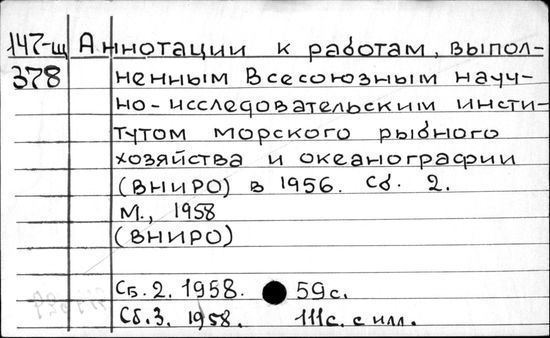 147-щ Аннотации к работам, выпол-
378 ненным Всесоюзным науч-
но-исследовательским инсти-
тутом морского рыбного
хозяйства и океанографии
(ВНИРО) в 1956. Сб. 2.
М., 1958
(ВНИРО)
Сб. 2. 1958. 59 с.
Сб. 3. 1958. 111 с. с илл.